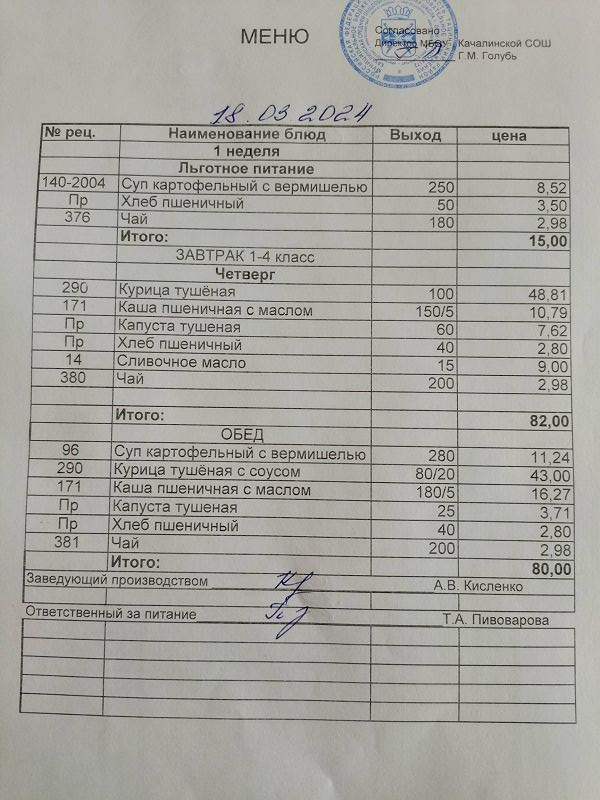 МЕНЮ
Согласовано
Директор МБОУ Качалинской СОШ
Г.М. Голубь
18.03 2024
№ рец. Наименование блюд Выход цена
1 неделя
Льготное питание
140-2004 Суп картофельный с вермишелью 250 8,52
Пр Хлеб пшеничный 50 3,50
376 Чай 180 2,98
Итого: 15,00
ЗАВТРАК 1-4 класс
Четверг
290 Курица тушёная 100 48,81
171 Каша пшеничная с маслом 150/5 10,79
Пр Капуста тушеная 60 7,62
Пр Хлеб пшеничный 40 2,80
14 Сливочное масло 15 9,00
380 Чай 200 2,98
Итого: 82,00
ОБЕД
96 Суп картофельный с вермишелью 280 11,24
290 Курица тушёная с соусом 80/20 43,00
171 Каша пшеничная с маслом 180/5 16,27
Пр Капуста тушеная 25 3,71
Пр Хлеб пшеничный 40 2,80
381 Чай 200 2,98
Итого: 80,00
Заведующий производством А.В. Кисленко
Ответственный за питание Т.А. Пивоварова